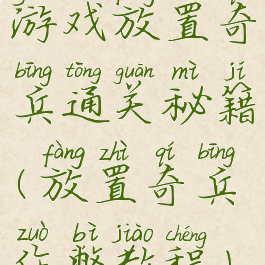 游戏放置奇
bīng tōng guān mì jí
兵通关秘籍
fàng zhì qí bīng
(放置奇兵
zuò bì jiào chéng
作弊教程)